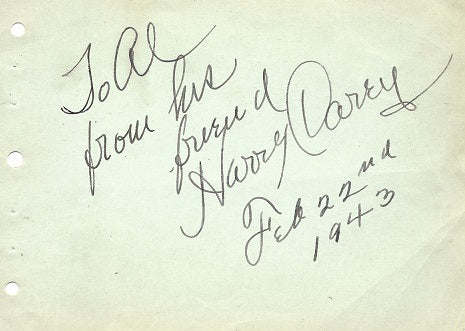 To Al
from his
friend
Harry Carey
Feb 22nd
1943